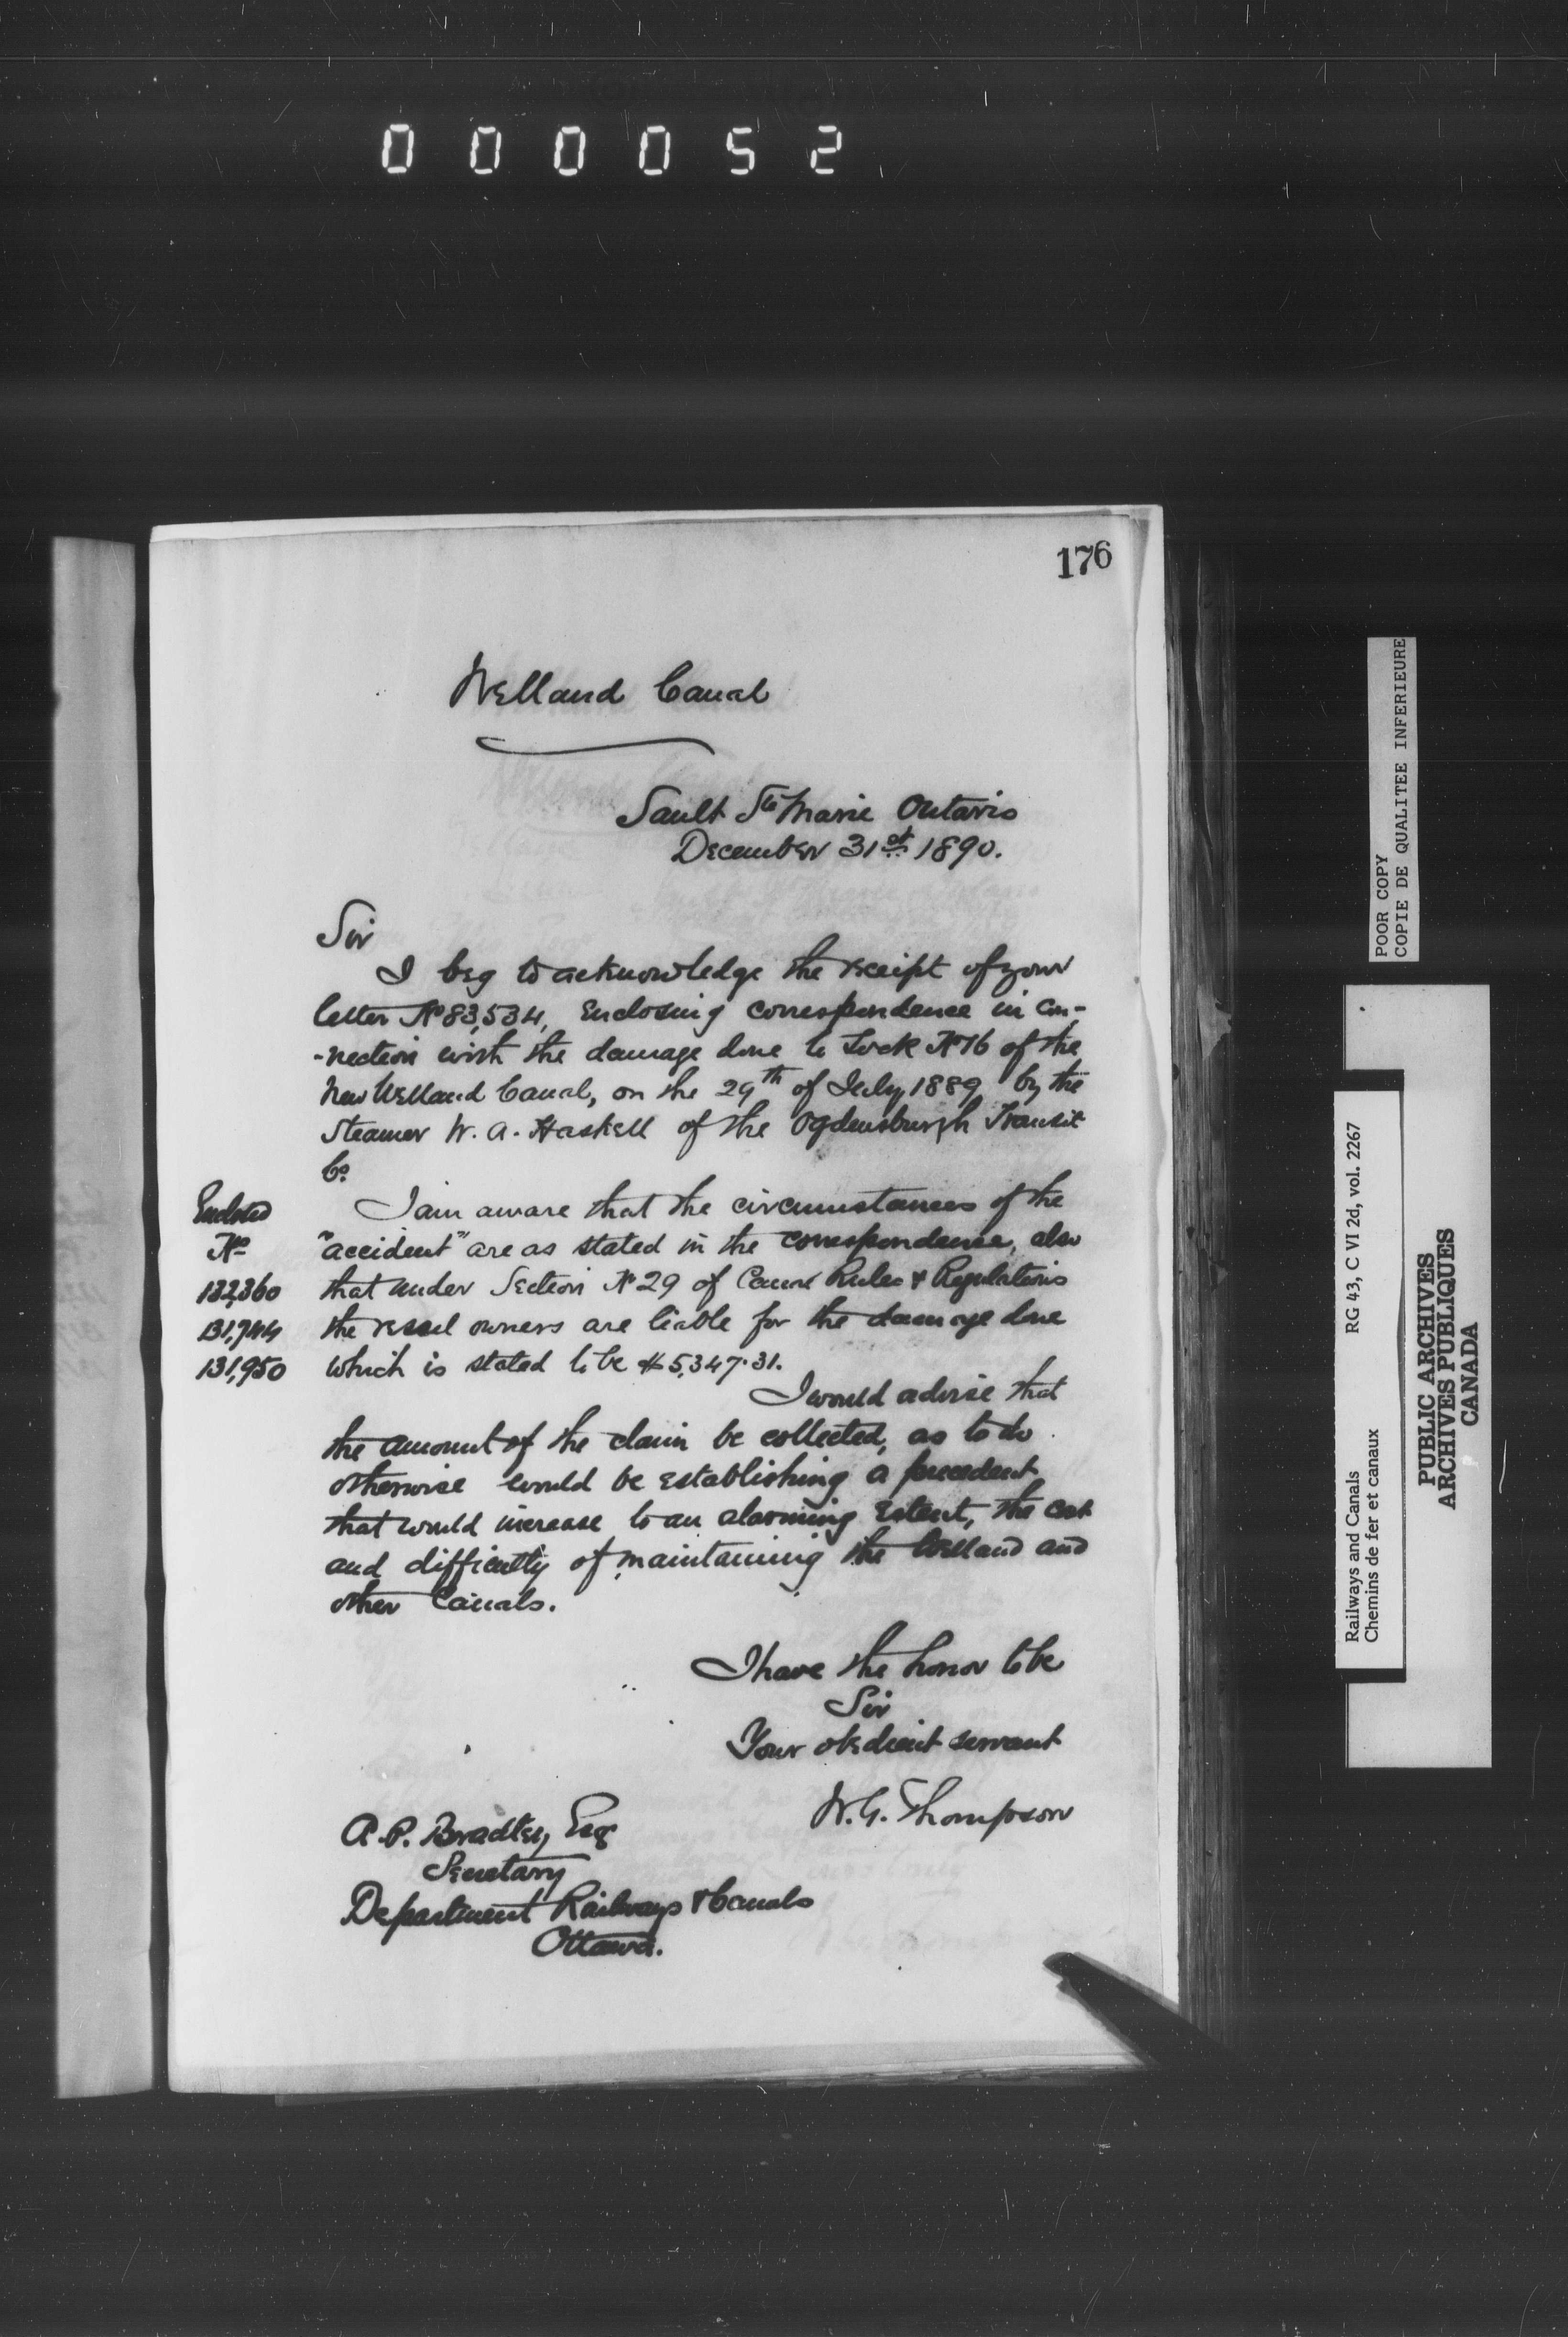 000052
176
Welland Canal
Sault Ste Marie Ontario
December 31st 1890.
Sir
I beg to acknowledge the receipt of your
letter No 83,534, Enclosing correspondence in con-
-nection with the damage done to Lock No 16 of the
New Welland Canal, on the 29th of July 1889 by the
Steamer W. A. Haskell of the Ogdensburgh Transit
Co.
I am aware that the circumstances of the
"accident" are as stated in the correspondence, also
that under Section No 29 of Canal Rules & Regulations
the vessel owners are liable for the damage done
which is stated to be $5,347.31.
Enclosed
No
132,360
131,744
131,950
I would advise that
the amount of the claim be collected, as to do
otherwise would be establishing a precedent
that would increase to an alarming extent, the cost
and difficulty of maintaining the Welland and
other Canals.
I have the honor to be
Sir
Your obedient servant
W. G. Thompson
A. P. Bradley Esq
Secretary
Department Railways & Canals
Ottawa.
POOR COPY
COPIE DE QUALITEE INFERIEURE
RG 43, C VI 2d, vol. 2267
Railways and Canals
Chemins de fer et canaux
PUBLIC ARCHIVES
ARCHIVES PUBLIQUES
CANADA